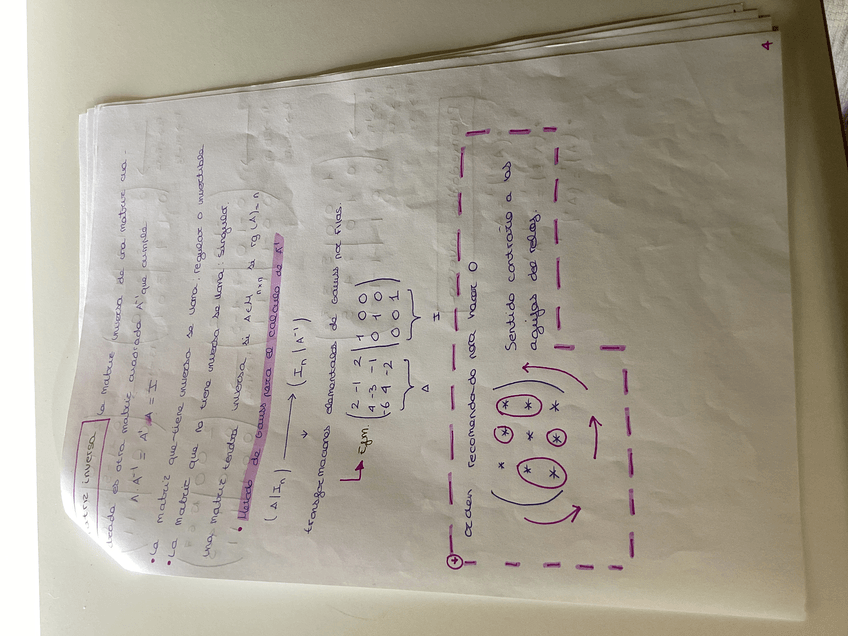 matriz inversa La matriz inversa de una matriz cua-
drada es otra matriz cuadrada A⁻¹ que cumple
A·A⁻¹ = A⁻¹·A = I
• La matriz que tiene inversa se llama: regular o invertible
• La matriz que no tiene inversa se llama: singular.
Una matriz tendrá inversa si A∈M n×n si rg(A)=n
• Método de Gauss para el cálculo de A⁻¹
(A|In) ⟶ (In|A⁻¹)
↓
transformaciones elementales de Gauss por filas.
↳ Ejm.
( 2 -1 2 | 1 0 0 )
( 4 -3 -1 | 0 1 0 )
( -6 4 -2 | 0 0 1 )
A I
+ orden recomendado para hacer 0
( * * * )
( * * * )
( * * * )
Sentido contrario a las
agujas del reloj.
4